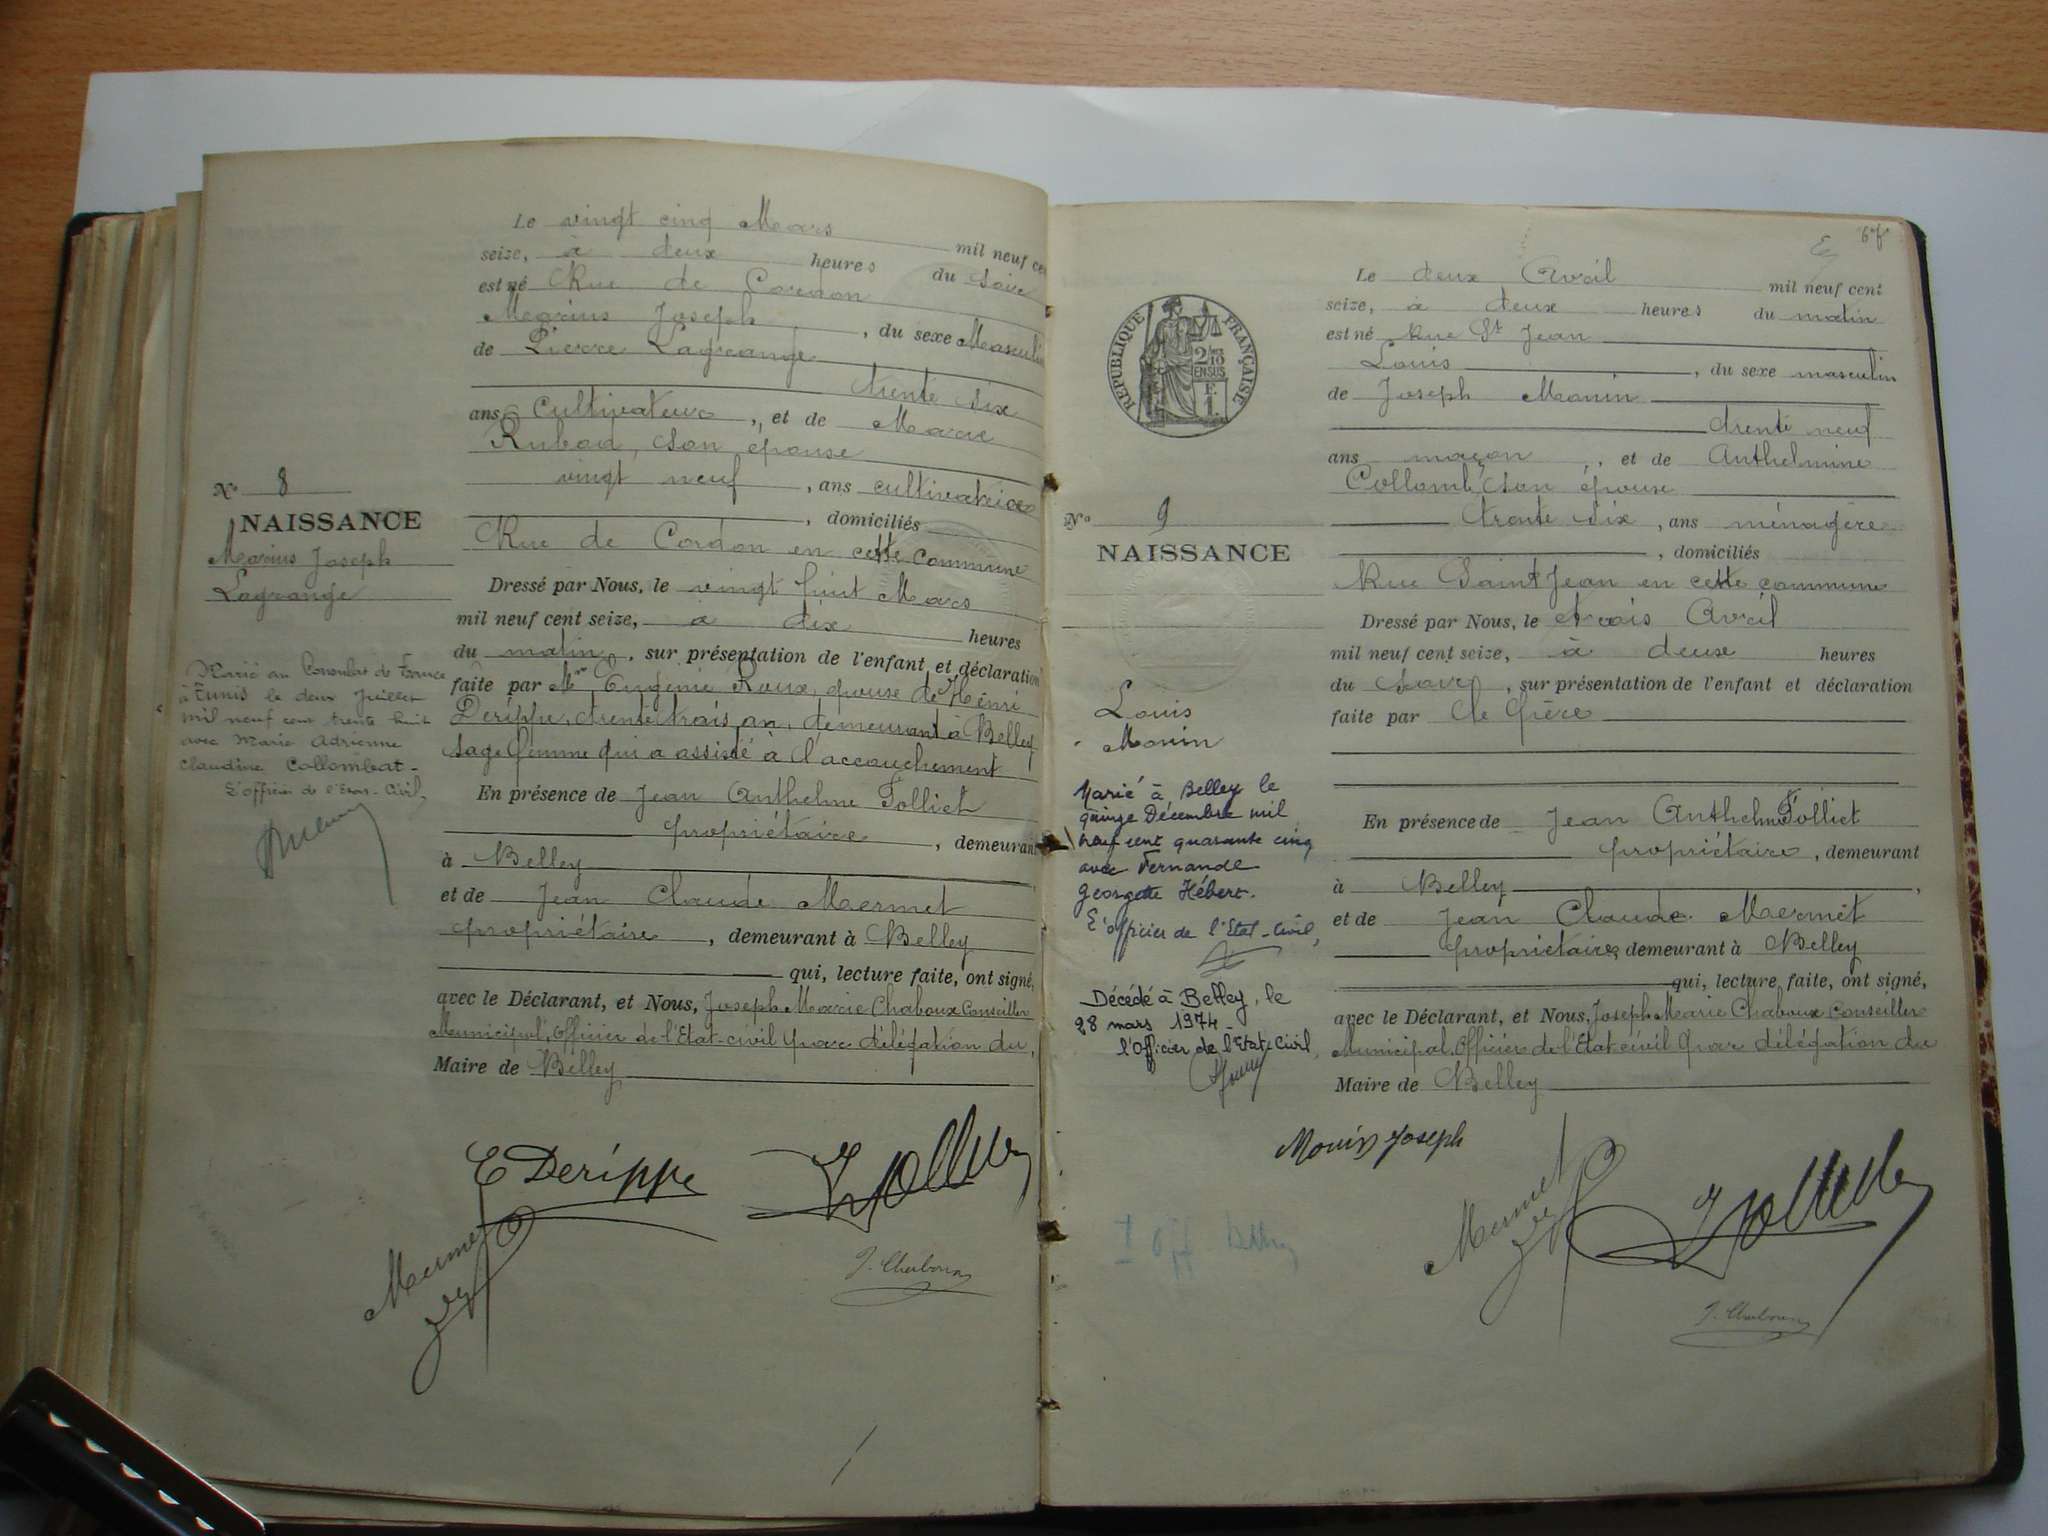 Le vingt cinq Mars mil neuf cen
seize, à deux heures du soir
est né Rue de Cordon
Marius Joseph, du sexe Masculin
de Pierre Lagrange
trente six
ans Cultivateur, et de Marie
Rubod, son épouse
vingt neuf, ans cultivatrice
, domiciliés
Rue de Cordon en cette commune
Dressé par Nous, le vingt huit Mars
mil neuf cent seize, à dix heures
du matin, sur présentation de l'enfant et déclaration
faite par Mme Eugénie Roux, épouse de Henri
Derippe, trente trois an, demeurant à Belley
sage femme qui a assisté à l'accouchement
En présence de Jean Anthelme Tolliet
propriétaire, demeurant
à Belley
et de Jean Claude Mermet
propriétaire, demeurant à Belley
qui, lecture faite, ont signé,
avec le Déclarant, et Nous, Joseph Marie Chaboux Conseiller
Municipal, Officier de l'Etat-civil par délégation du
Maire de Belley
E Derippe
Mermet
No 8
NAISSANCE
Marius Joseph
Lagrange
Marié au Consulat de France
à Tunis le deux Juillet
mil neuf cent trente huit
avec Marie Adrienne
Claudine Collombat-
L'officier de l'Etat-Civil,
6 f
REPUBLIQUE FRANÇAISE
2/10
EN SUS
F.
1.
Le deux Avril mil neuf cent
seize, à deux heures du matin
est né Rue St Jean
Louis, du sexe masculin
de Joseph Monin
trente neuf
ans maçon, et de Anthelmine
Collomb, son épouse
trente six, ans ménagère
, domiciliés
Rue Saint Jean en cette commune
Dressé par Nous, le trois Avril
mil neuf cent seize, à deux heures
du soir, sur présentation de l'enfant et déclaration
faite par le Père
En présence de Jean Anthelme Tolliet
propriétaire, demeurant
à Belley,
et de Jean Claude Mermet
propriétaire, demeurant à Belley
qui, lecture faite, ont signé,
avec le Déclarant, et Nous, Joseph Marie Chaboux Conseiller
Municipal, Officier de l'Etat civil par délégation du
Maire de Belley
Monin Joseph
Mermet
No 9
NAISSANCE
Louis
Monin
Marié à Belley le
quinze Décembre mil
neuf cent quarante cinq
avec Fernande
Georgette Hébert.
L'officier de l'Etat-Civil,
Décédé à Belley, le
28 mars 1974-
l'Officier de l'Etat-Civil,